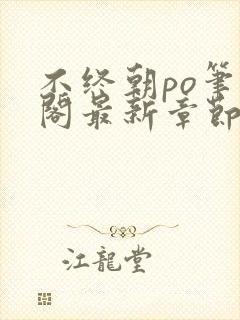 不终朝po笔
阁最新章节
江龍堂